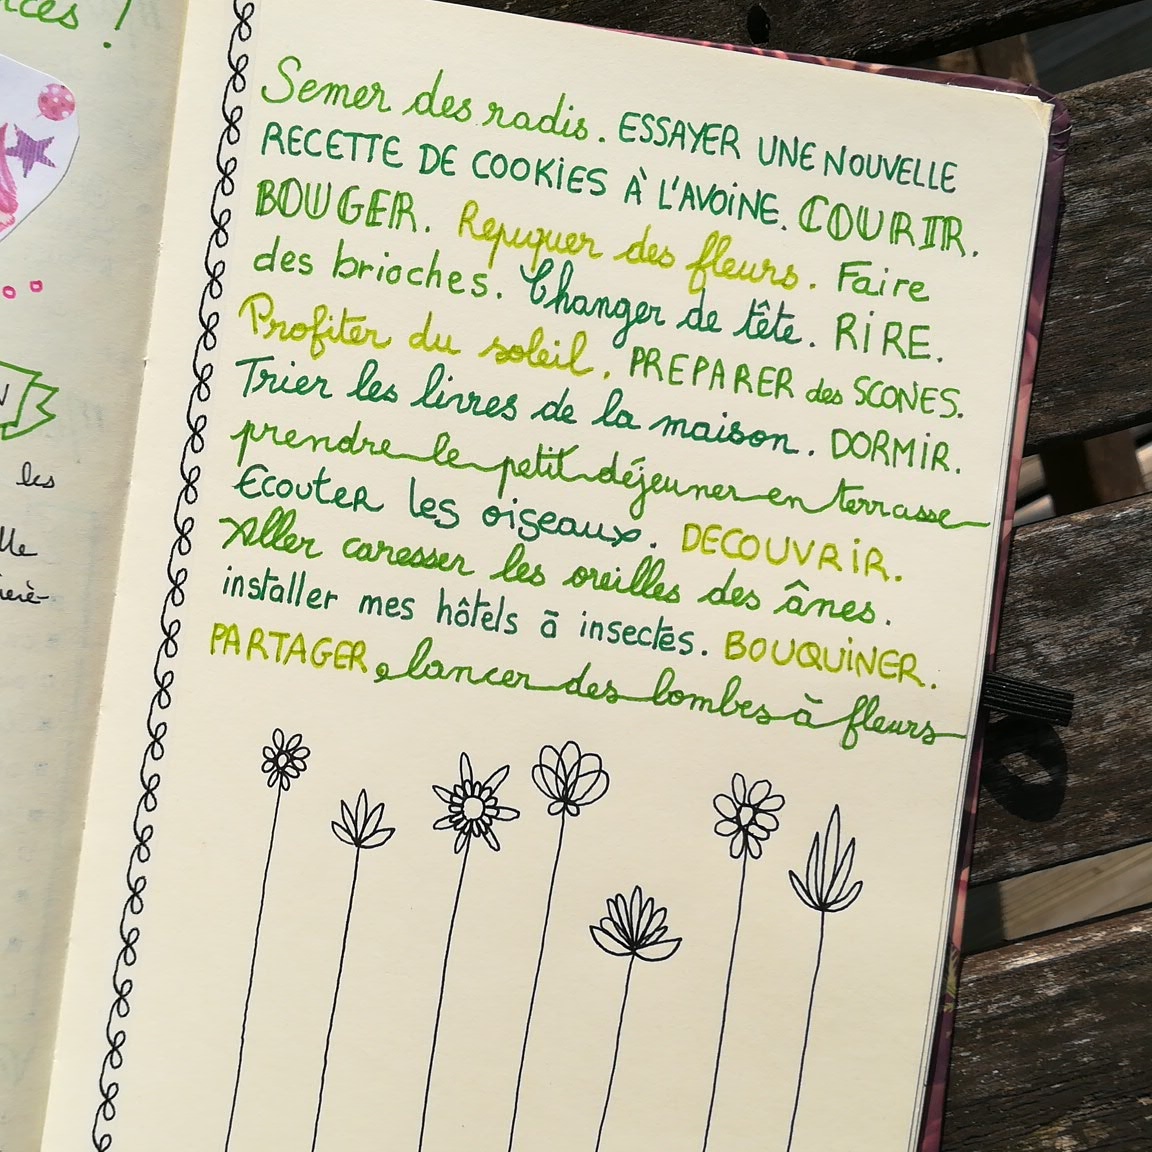 ces !
les
lle
Semer des radis. ESSAYER UNE NOUVELLE
RECETTE DE COOKIES À L'AVOINE. COURIR.
BOUGER. Repiquer des fleurs. Faire
des brioches. Changer de tête. RIRE.
Profiter du soleil. PREPARER des SCONES.
Trier les livres de la maison. DORMIR.
prendre le petit déjeuner en terrasse
Ecouter les oiseaux. DECOUVRIR.
Aller caresser les oreilles des ânes.
installer mes hôtels à insectes. BOUQUINER.
PARTAGER, lancer des bombes à fleurs